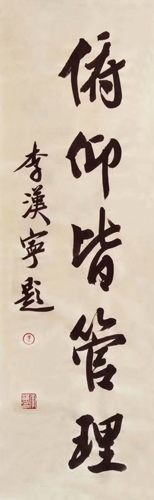 俯仰皆管理
李漢寧題